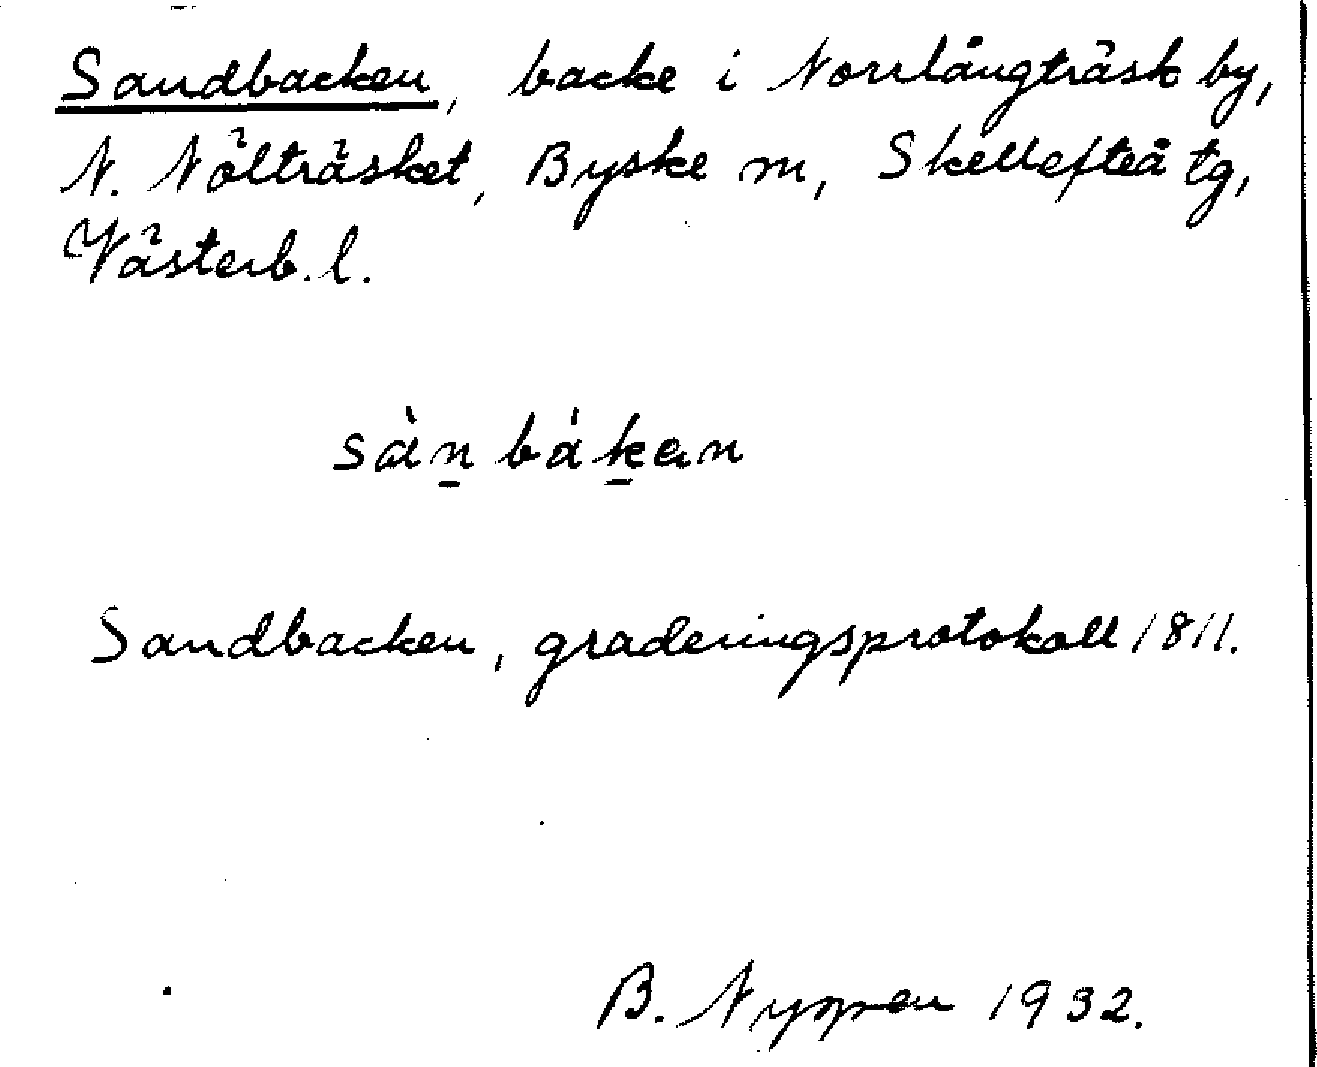 Sandbacken, backe i Norrlångträsk by,
N. Nölträsket, Byske sn, Skellefteå tg,
Västerb. l.
sàn bákan
Sandbacken, graderingsprotokoll 1811.
B. 1932.